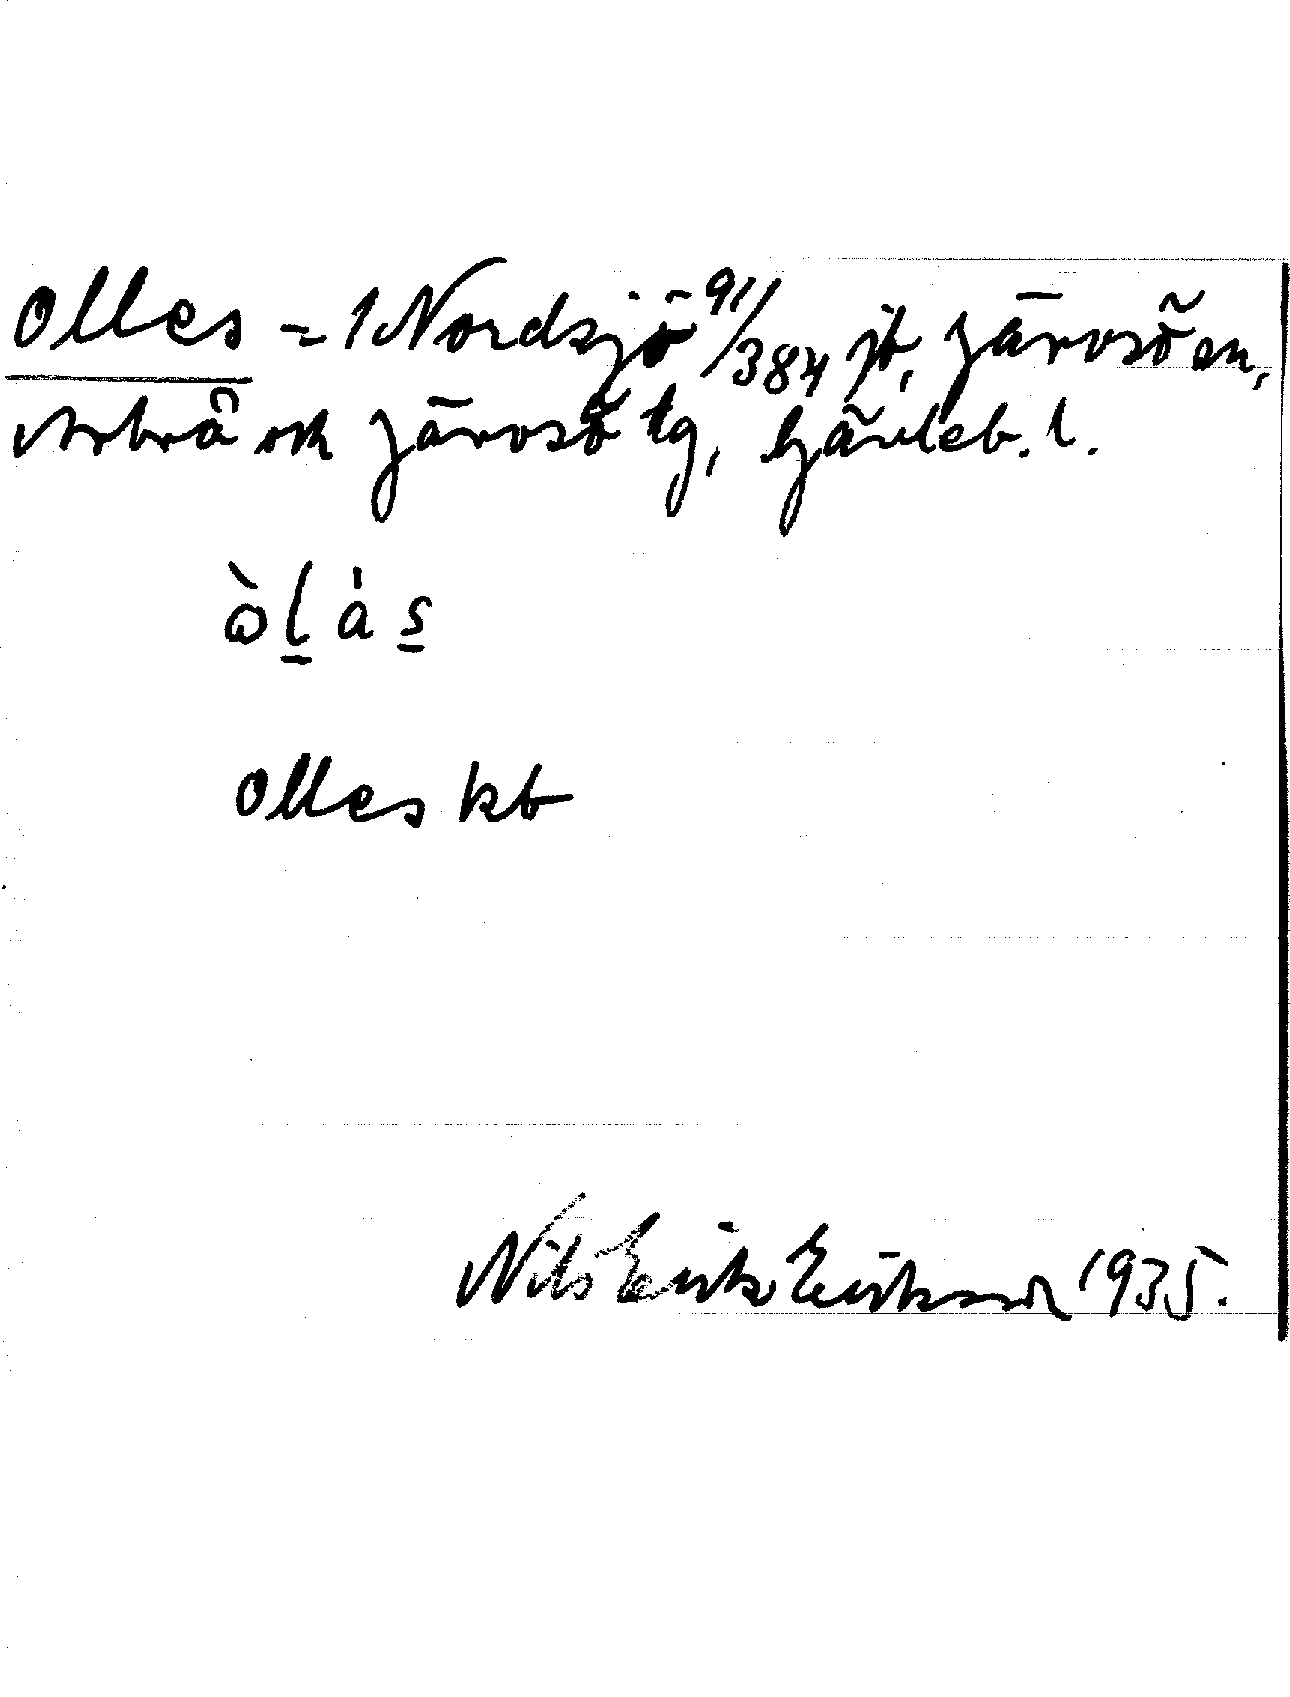 Olles = 1 Nordsjö 91/384 jb, Järvsö sn,
Arbrå och Järvsö tg, Gävleb. l.
ò l a s
Olles kb
Nils Erik Eriksson 1935.